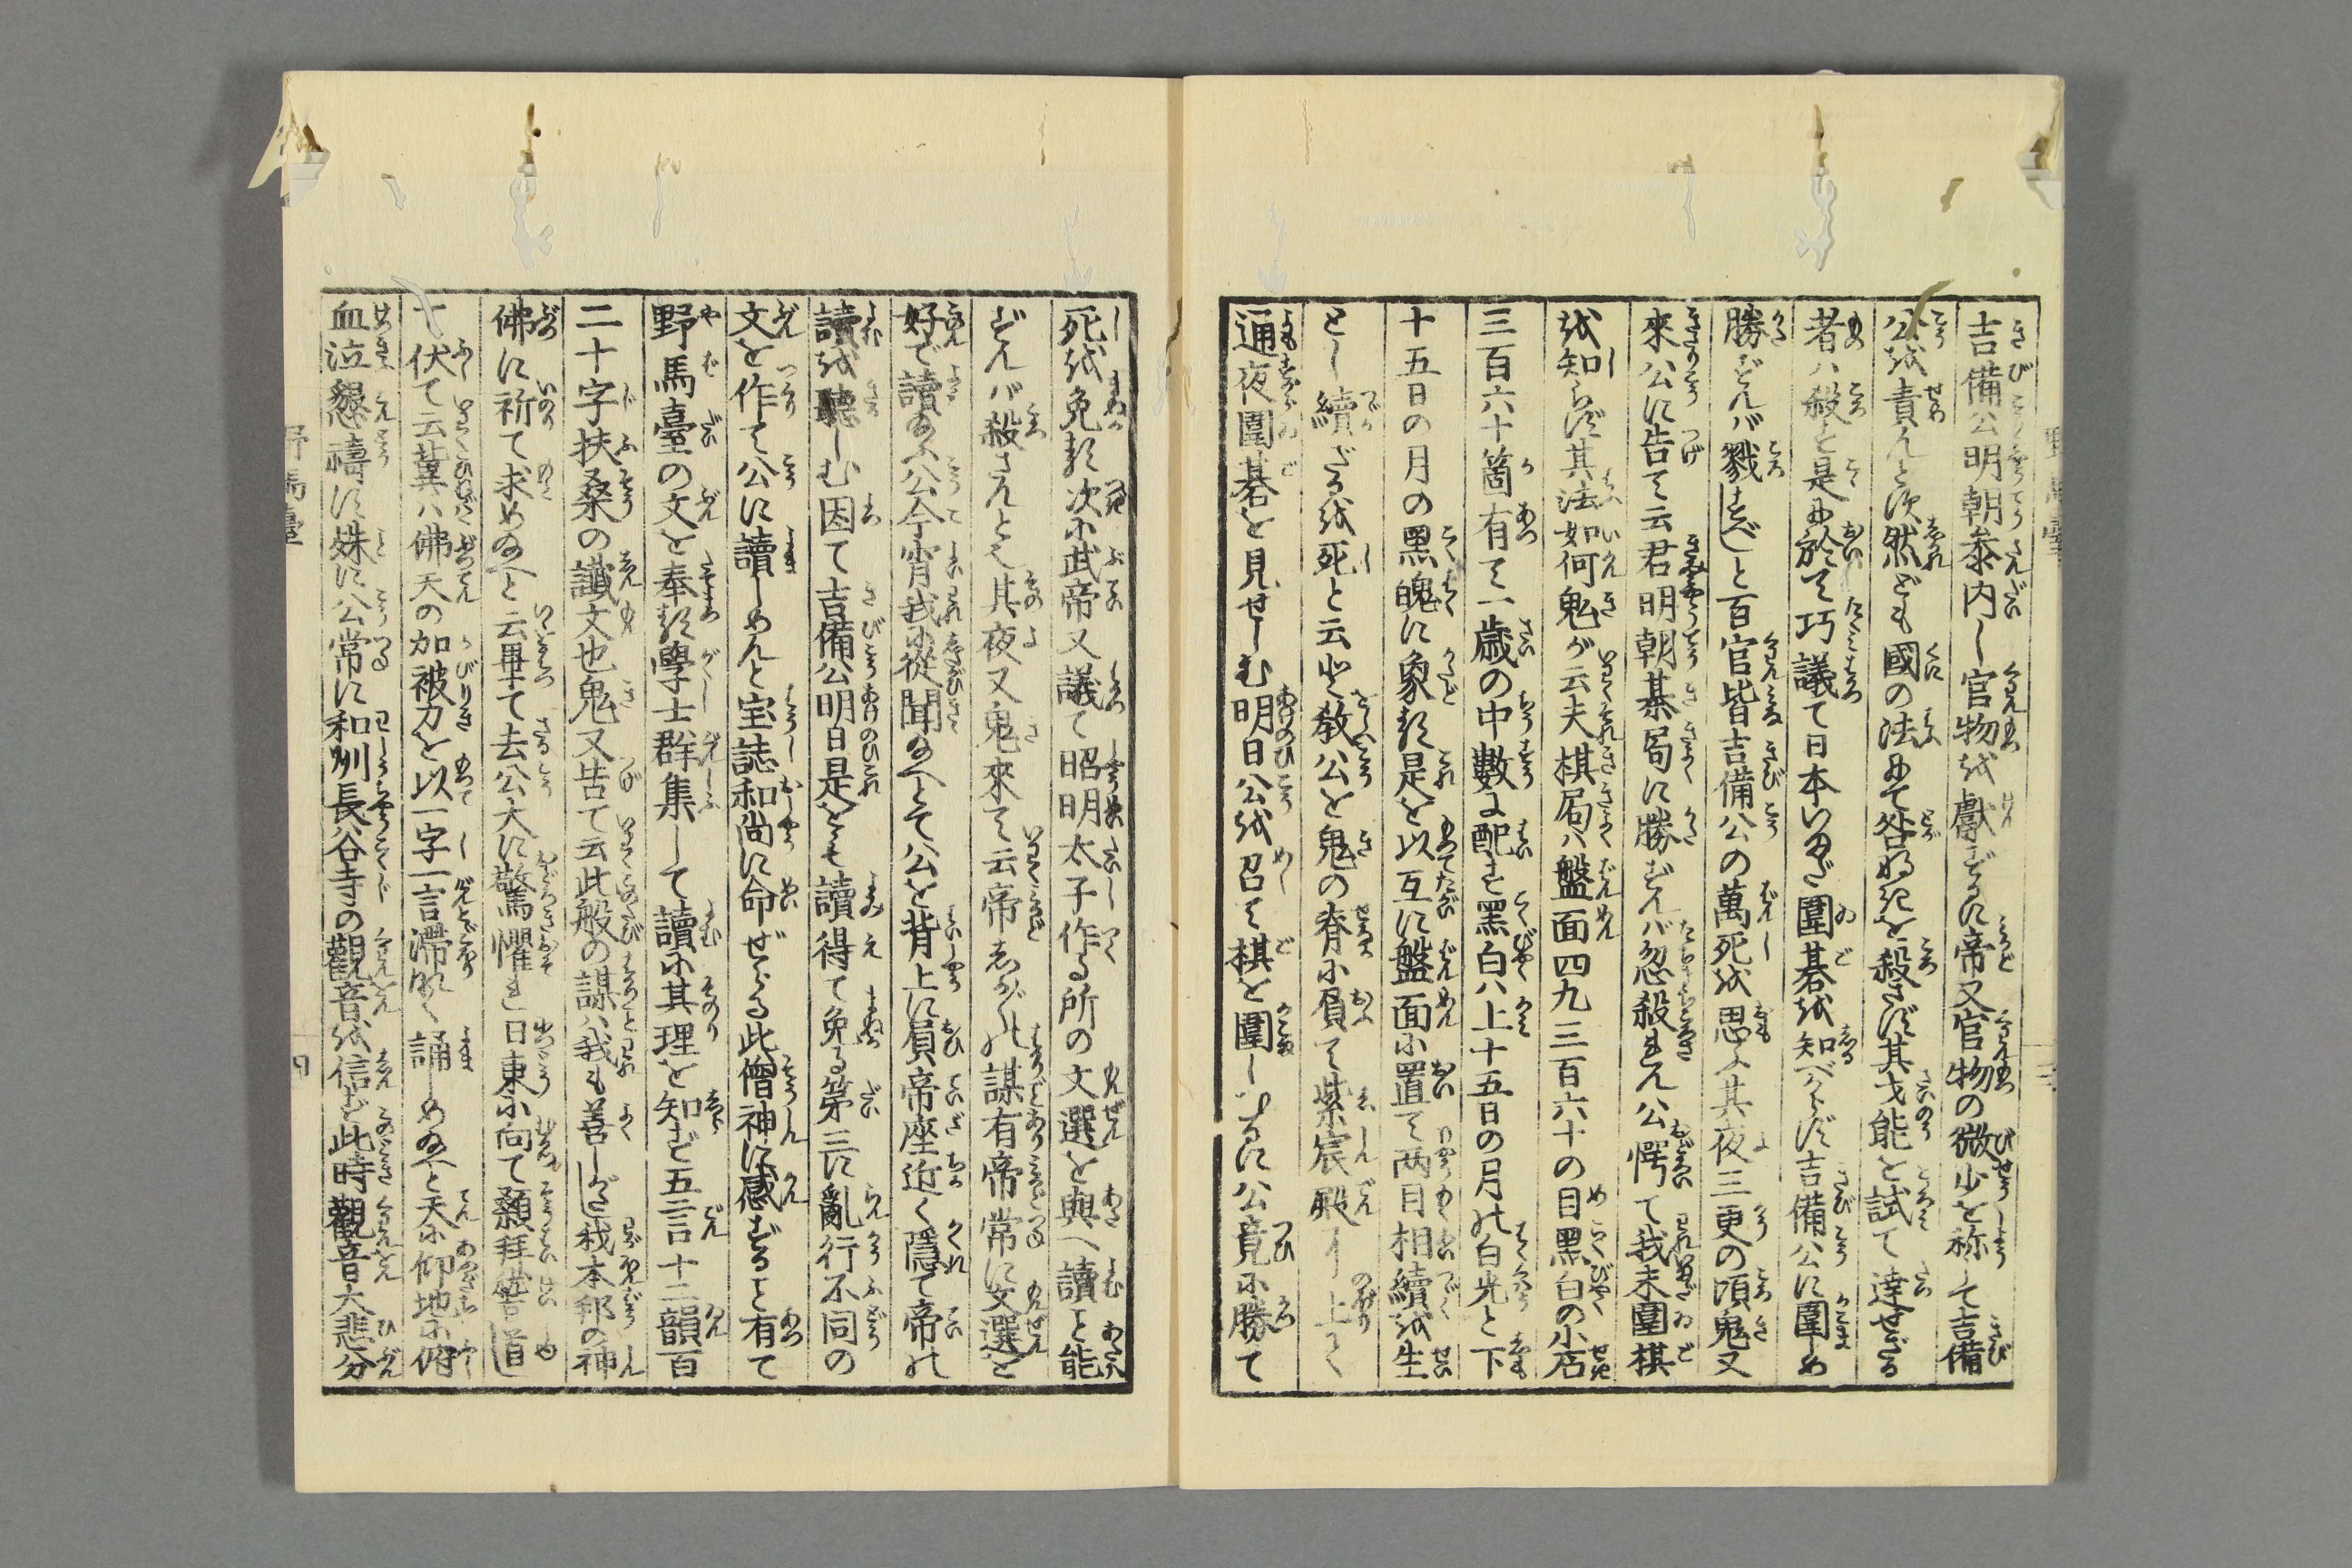 吉備公明朝參内し官物を獻ずるに帝又官物の微少を称して吉備
公を責んと欲然ども國の法にて咎なきを殺さず其才能を試て達せざる
者ハ殺と是に於て巧議て日本いまだ圍碁を知べからず吉備公に圍しめ
勝ずんバ戮すべしと百官皆吉備公の萬死を思ふ其夜三更の頃鬼又
來公に告て云君明朝棊局に勝ずんバ忽殺れん公愕て我未圍棋
を知らず其法如何鬼が云夫棋局ハ盤面四九三百六十の目黑白の小石
三百六十箇有て一歳の中數に配す黑白ハ上十五日の月の白光と下
十五日の月の黑魄に象る是を以互に盤面に置て両目相續を生
とし續ざるを死と云悉教公を鬼の脊に屓て紫宸殿に上て
通夜圍碁を見せしむ明日公を召て棋を圍しむるに公竟に勝て
死を免る次に武帝又議て昭明太子作る所の文選を與へ讀こと能
ずんバ殺さんとす其夜又鬼來て云帝しか〴〵の謀有帝常に文選を
好で讀給ふ公今宵我に從聞給へとて公を背上に屓帝座近く隱て帝の
讀を聽しむ因て吉備公明日是をも讀得て免る第三に亂行不同の
文を作て公に讀しめんと宝誌和尚に命ぜらる此僧神に感ずること有て
野馬臺の文を奉る學士群集して讀に其理を知ず五言十二韻百
二十字扶桑の讖文也鬼又告て云此般の謀ハ我も善しがたし我本邦の神
佛に祈て求め給へと云畢て去公大に驚懼れ日東に向て顙拜
伏て云冀ハ佛天の加被力を以一字一言滯なく誦しめ給へと天に仰地に俯
血泣懇禱に殊に公常に和刕長谷寺の觀音を信ず此時觀音大悲分
野馬臺